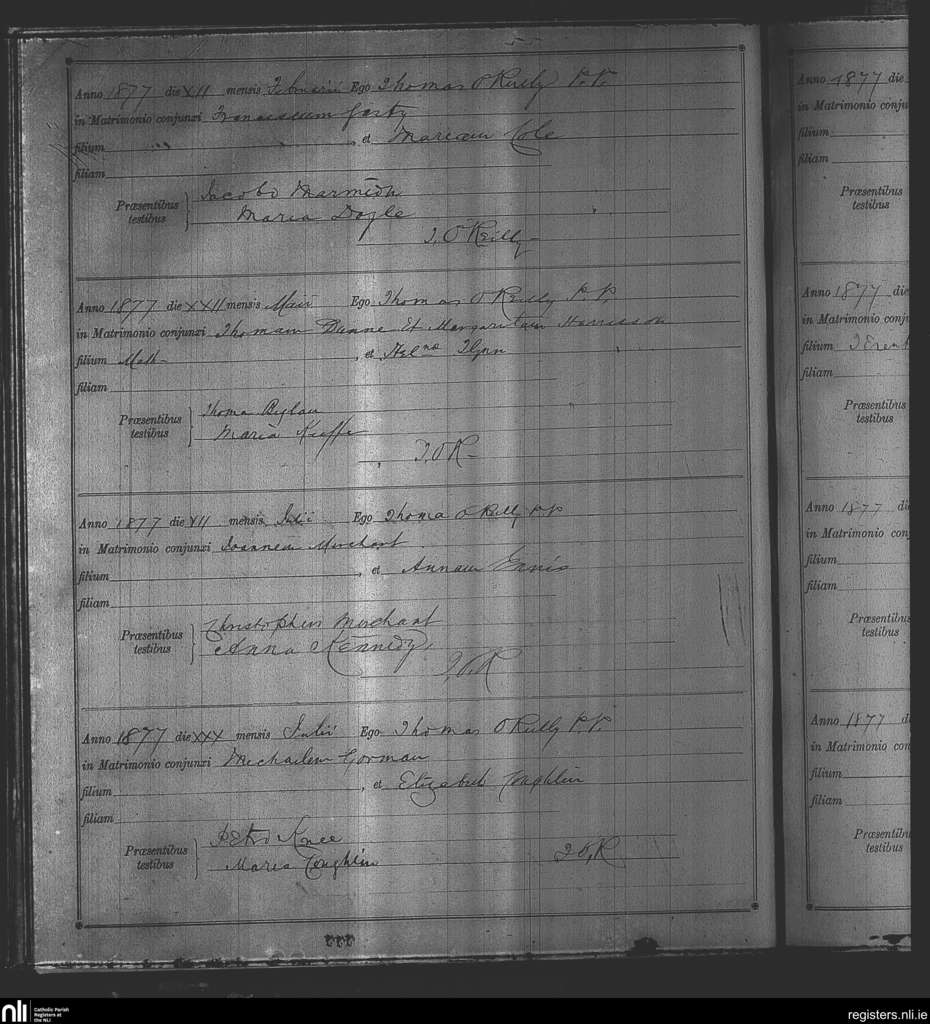 Anno 1877 die XII mensis Februarii Ego Thomas O'Reilly P.P.
in Matrimonio conjunxi Franciscum
filium , et Mariam Cole
filiam
Præsentibus testibus Jacobo
Maria Doyle
T. O'Reilly
Anno 1877 die XXII mensis Maii Ego Thomas O'Reilly P.P.
in Matrimonio conjunxi Thomam Dunne Et Margaritam Harrisson
filium , et Flynn
filiam
Præsentibus testibus Thoma
Maria Keeffe
T.O'R
Anno 1877 die XII mensis Julii Ego Thoma O'Reilly P.P.
in Matrimonio conjunxi Joannem Merchant
filium , et Annam Ennis
filiam
Præsentibus testibus Christophero Merchant
Anna Kennedy
T.O'R
Anno 1877 die XXX mensis Julii Ego Thomas O'Reilly P.P.
in Matrimonio conjunxi Michaelem Gorman
filium , et Elizabeth Coughlin
filiam
Præsentibus testibus Petro Knee
Maria Coughlin T.O'R
Anno 1877 die
in Matrimonio conju
filium
filiam
Præsentibus
testibus
Anno 1877 die
in Matrimonio conju
filium
filiam
Præsentibus
testibus
Anno 1877 di
in Matrimonio conj
filium
filiam
Præsentibu
testibus
Anno 1877 d
in Matrimonio con
filium
filiam
Præsentibu
testibus
nli Catholic Parish Registers at the NLI
registers.nli.ie